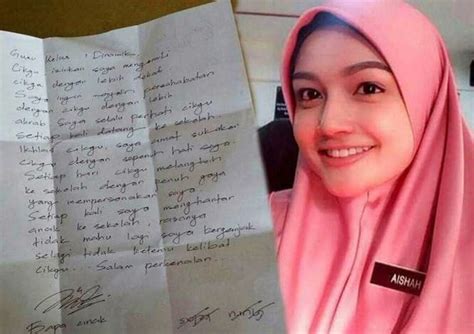 Guru Kelas : Dinamika
Cikgu izinkan saya mengenali
cikgu dengan lebih dekat
Saya ingin menjalin persahabatan
dengan cikgu dengan lebih
akrab. Saya selalu perhati cikgu
Setiap kali datang ke sekolah.
Ikhlas cikgu, saya amat sukakan
cikgu dengan sepenuh hati saya.
Setiap hari cikgu melangkah
ke sekolah dengan penuh gaya
yang mempersonakan saya.
Setiap kali saya menghantar
anak ke sekolah, rasanya
tidak mahu lagi saya berganjak
selagi tidak ketemu kelibat
cikgu... Salam perkenalan.
Bapa anak
AISHAH